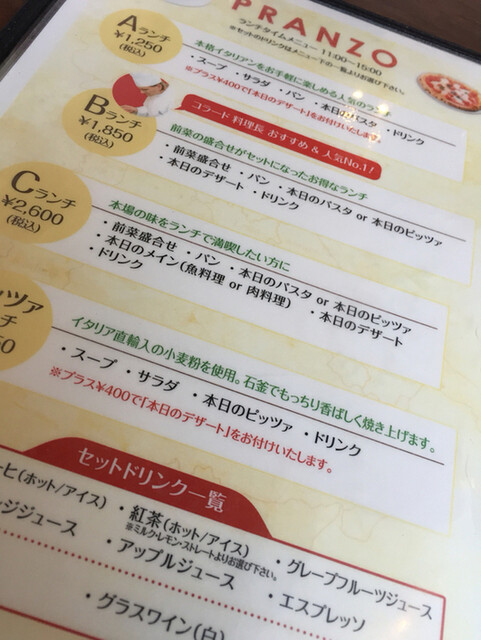 PRANZO
ランチタイムメニュー 11:00～15:00
※セットのドリンクはメニュー下の一覧よりお選び下さい。
Aランチ
¥1,250
(税込)
本格イタリアンをお手軽に楽しめる人気のランチ
・スープ ・サラダ ・パン ・本日のパスタ ・ドリンク
※プラス¥400で「本日のデザート」をお付けいたします。
Bランチ
¥1,850
(税込)
コラード 料理長 おすすめ & 人気No.1!
前菜の盛合せがセットになったお得なランチ
・前菜盛合せ ・パン ・本日のパスタ or 本日のピッツァ
・本日のデザート ・ドリンク
Cランチ
¥2,600
(税込)
本場の味をランチで満喫したい方に
・前菜盛合せ ・パン ・本日のパスタ or 本日のピッツァ
・本日のメイン(魚料理 or 肉料理) ・本日のデザート
・ドリンク
ッツァ
チ
50
イタリア直輸入の小麦粉を使用。石釜でもっちり香ばしく焼き上げます。
・スープ ・サラダ ・本日のピッツァ ・ドリンク
※プラス¥400で「本日のデザート」をお付けいたします。
セットドリンク一覧
ーヒ(ホット/アイス) ・紅茶(ホット/アイス) ・グレープフルーツジュース
※ミルク・レモン・ストレートよりお選び下さい。
ジジュース ・アップルジュース ・エスプレッソ
・グラスワイン(白)